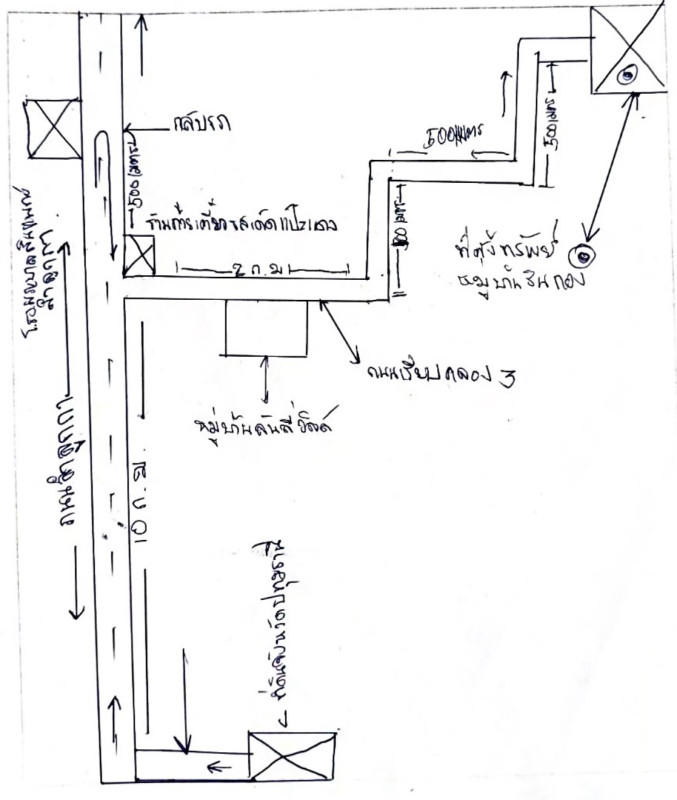 กลับรถ
500 เมตร
ร้านก๋วยเตี๋ยวรสเด็ดแป๊ะแดง
2 ก.ม
500 เมตร
500 เมตร
500 เมตร
ที่ตั้งทรัพย์
หมู่บ้านชินกอง
ถนนเรียบคลอง 3
หมู่บ้าน
โรงพยาบาล
ลำลูกกา
ถนนลำลูกกา
10 ก.ม.
ที่ดินจังหวัดปทุมธานี